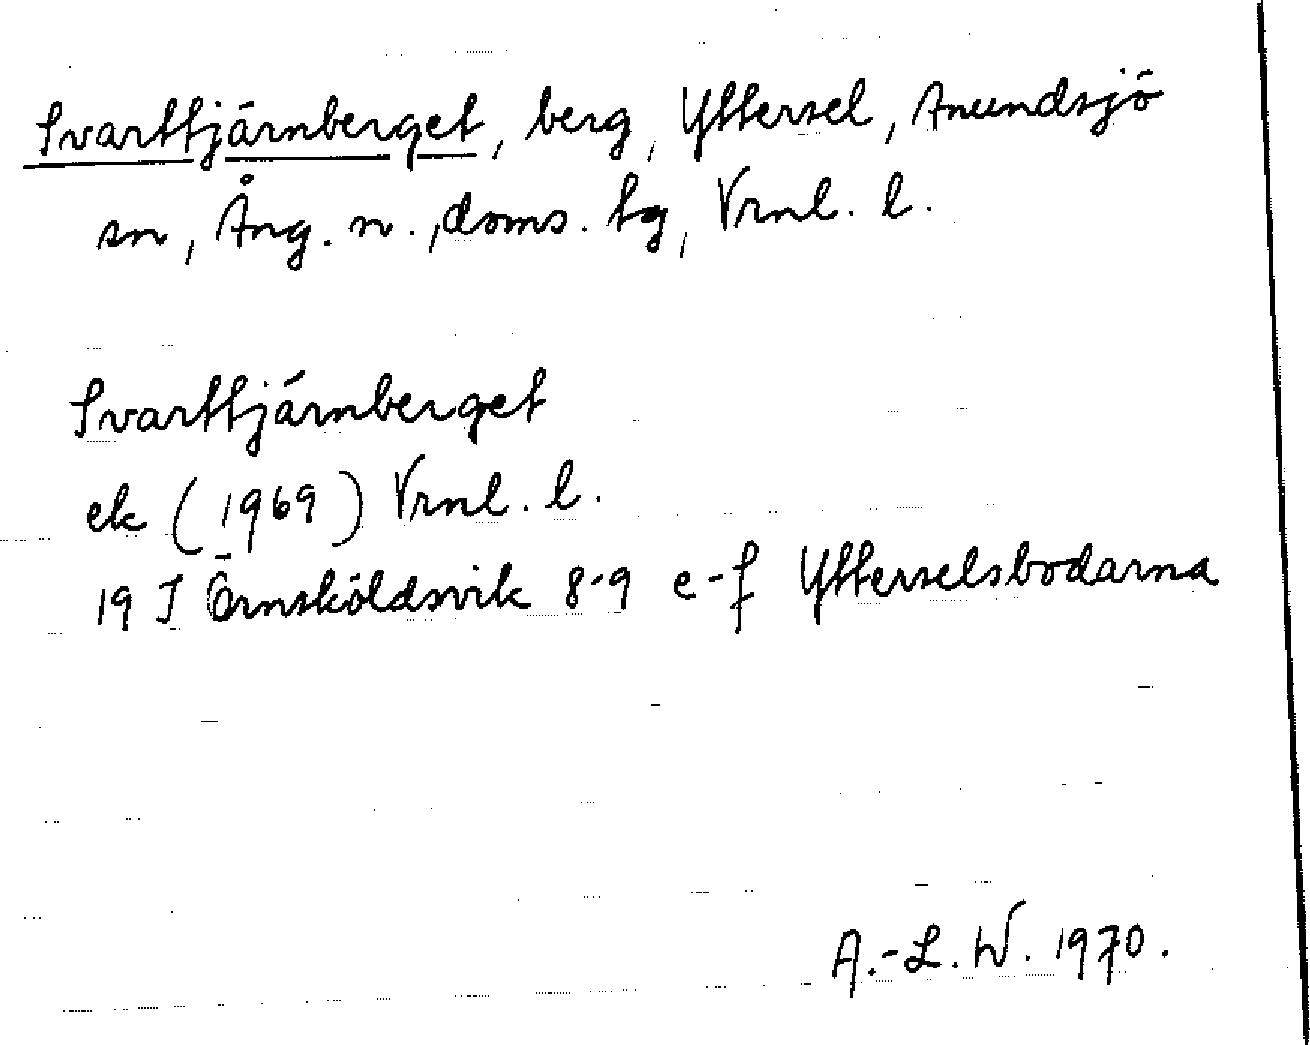 Svarttjärnberget, berg, Yttersel, Anundsjö
sn, Ång. n., doms. tg, Vrnl. l.
Svarttjärnberget
ek (1969) Vrnl. l.
19 J Örnsköldsvik 8-9 e-f Ytterselsbodarna
A.-L. W. 1970.